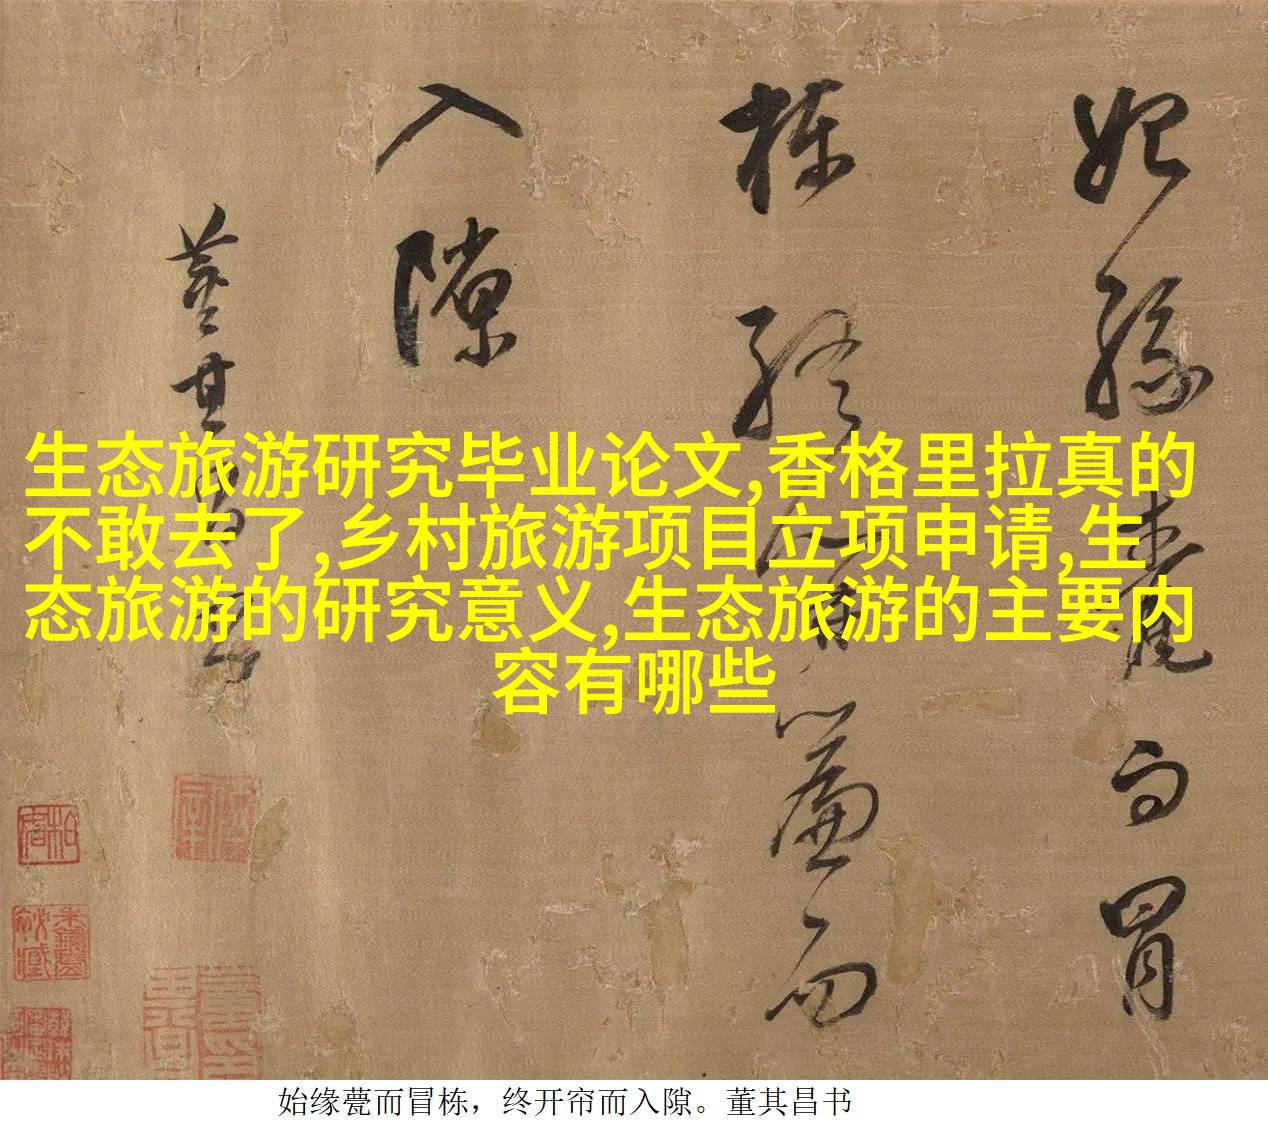 始緣甍而冒
棟終開簾而
入隙
董其昌書
生态旅游研究毕业论文,香格里拉真的
不敢去了,乡村旅游项目立项申请,生
态旅游的研究意义,生态旅游的主要内
容有哪些
始缘甍而冒栋，终开帘而入隙。董其昌书